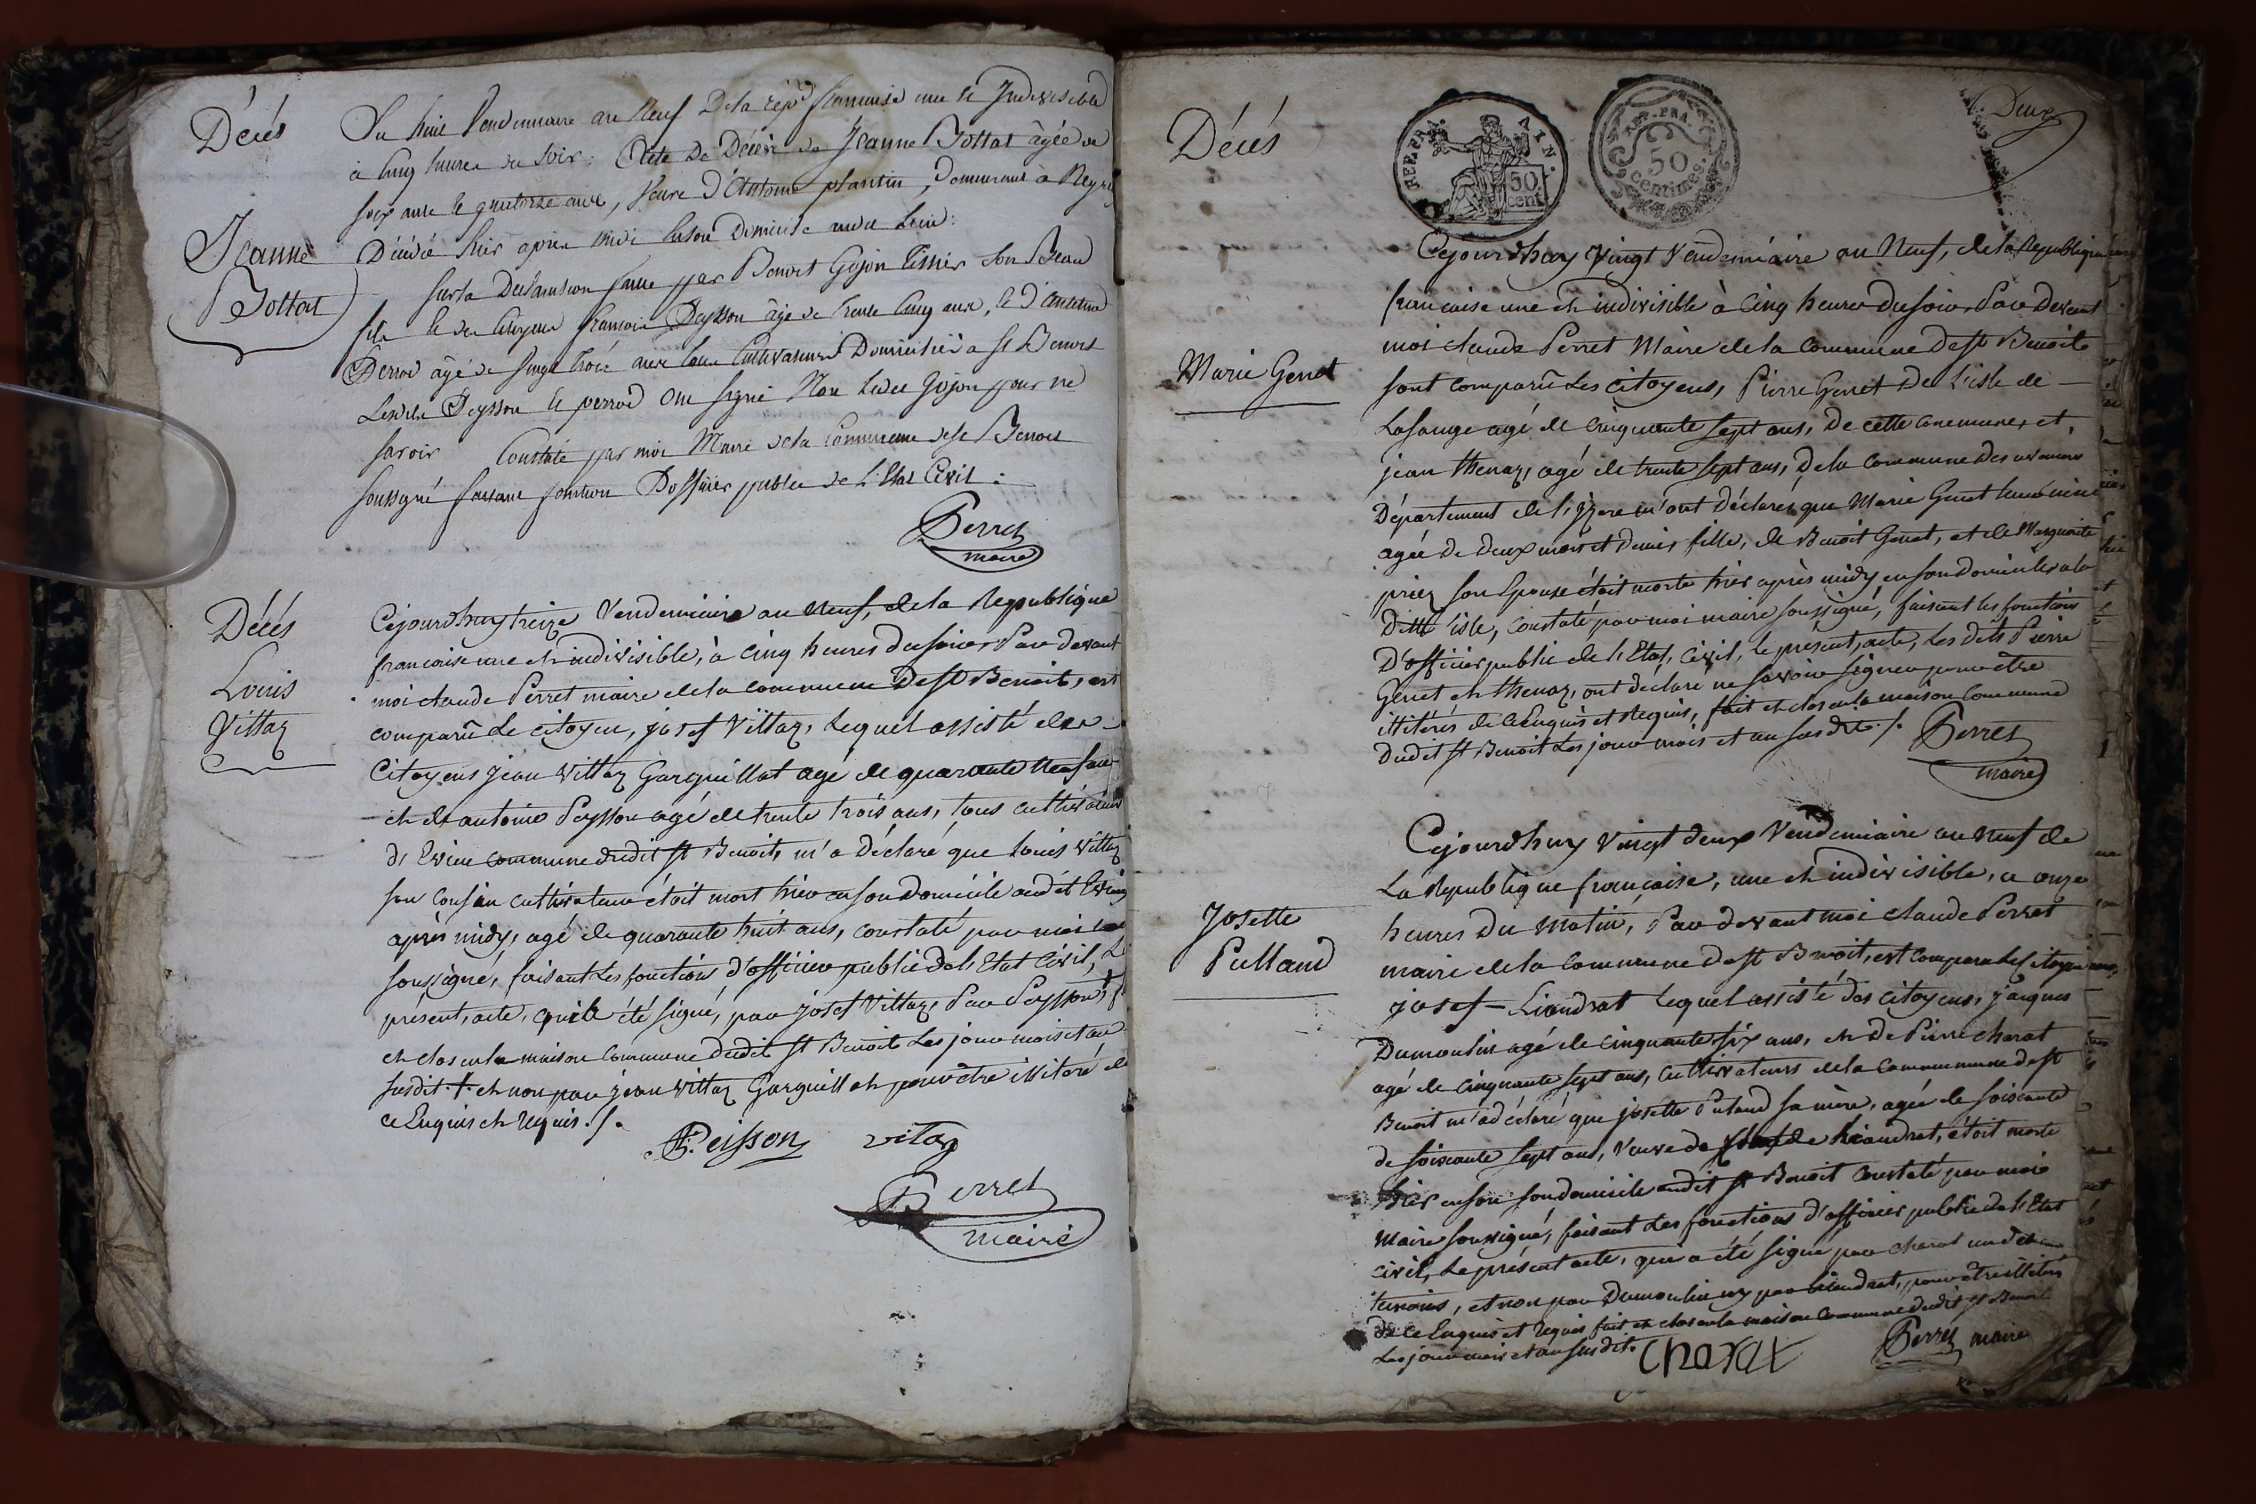 Décés
Jeanne
Bottat
Du huit Vendemiaire an Neuf De la rép.e francaise une et Indivisible
à Cinq heures du Soir; Acte De Décès de Jeanne Bottat âgée de
soix ante et quatorze ans, Veuve D'Antoine plantin, Demeurant à
Décédé hier après midi en son Domicile audit Lieu:
Sur la Déclaration faite par Benoit Gojon Tissier Son Beau
fils et des Citoyens francois Peysson âgé de trente Cinq ans, et d'Anselme
Perrod âgé de vingt trois ans tous Cultivateurs Domiciliés à St Benoit
Lesdits Peysson et perrod Ont signé Non ledit Gojon pour ne
savoir Constaté par moi Maire de la Commune de St Benoit
soussigné faisant fonction D'officier public de l'Etat Civil:
Perret
maire
Décés
Louis
Vittaz
Cejourdhuy treize Vendemiaire an Neuf, de la Republique
francaise une et indivisible, à Cinq heures du soir, Par devant
moi claude Perret maire de la commune De St Benoit, est
comparû Le citoyen, josef Vittaz, Lequel assisté des
Citoyens jean Vittaz Garguillat agé de quarante Neuf ans
et de antoine Peysson agé de trente trois ans, tous cultivateurs
d'Evieu commune dudit St Benoit, m'a Déclaré que Louis Vittaz
son Cousin cultivateur étoit mort hier en son Domicile audit Evieu
après midy, agé de quarante huit ans, constaté par moi
soussigné, faisant Les fonctions d'officier public de l'Etat Civil, Le
présent, acte, qui a été signé, par josef Vittaz, Par Peysson, f
et clos en la maison Commune dudit St Benoit Les jour mois et an
susdit. + et non par jean Vittaz Garguillet pour être illitéré de
ce Enquis et requis ./.
Peisson vitaz
Perret
maire
Deux
Décés
REP. FRA. AIN.
50
cent
REP. FRA.
50
centimes.
Marie Genet
Cejourdhuy Vingt Vendemiaire an Neuf, de la Republique
francaise une et indivisible à Cinq heures du soir, Par Devant
moi claude Perret Maire de la Commune De St Benoit
sont Comparû Les citoyens, Pierre Genet De L'isle de
La Sauge agé de Cinquante Sept ans, De cette Commune, et,
jean thenaz, agé de trente sept ans, De la Commune Des avenières
Département de l'izere m'ont Déclarés que Marie Genet
agée De Deux mois et Demis, fille, de Benoit Genet, et de Marguerite
priez son Epouse étoit morte hier après midy en son domicile a la
Ditte isle, Constaté par moi maire soussigné, faisant les fonctions
D'officier public de l'Etat, Civil, Le présent, acte, Les dits Pierre
Genet et thenaz, ont déclaré ne savoir signer pour être
illitérés de ce Enquis et Requis, fait et clos en la maison Commune
dudit St Benoit Les jour mois et an susdits ./.
Perret
maire
Josette
Pulland
Cejourdhuy Vingt deux Vendemiaire an Neuf de
La Republique francaise, une et indivisible, a onze
heures Du Matin, Par devant moi claude Perret
maire de la Commune De St Benoit, est comparu Le citoyen
josef Liaudrat Lequel assisté des citoyens, jacques
Dumoulin agé de Cinquante Six ans, et De Pierre charat
agé de Cinquante Sept ans, Cultivateurs de la Commune de St
Benoit m'a déclaré que josette Puland sa mère, agée de soixante
de soixante Sept ans, Veuve de Liaudrat, étoit morte
hier en son son domicile audit St Benoit Constaté par moi
Maire soussigné, faisant Les fonctions d'officier public de l'Etat
Civil, Le présent acte, qui a été signé par charat un des
témoins, et non par Dumoulin ny par Liaudrat, pour être illitérés
De ce Enquis et Requis fait et clos en la maison Commune dudit St Benoit
Les jour mois et an susdit.
Charat
Perret maire